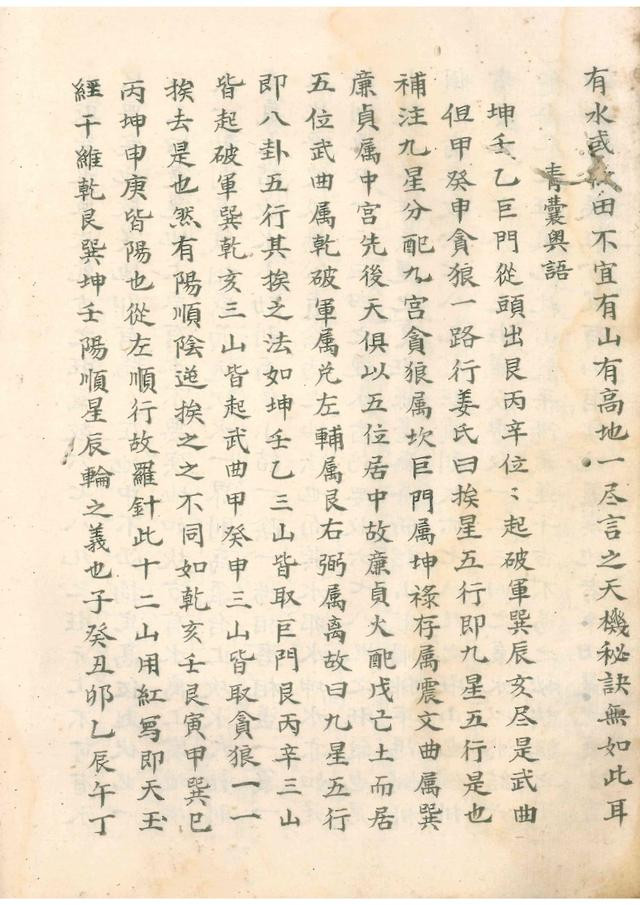 有水或田不宜有山有高地一尽言之天機秘訣無如此耳
青囊奥語
坤壬乙巨門從頭出艮丙辛位〻起破軍巽辰亥尽是武曲
但甲癸申貪狼一路行姜氏曰挨星五行即九星五行是也
補注九星分配九宮貪狼属坎巨門属坤禄存属震文曲属巽
廉貞属中宮先後天俱以五位居中故廉貞火配戊己土而居
五位武曲属乾破軍属兑左輔属艮右弼属离故曰九星五行
即八卦五行其挨之法如坤壬乙三山皆取巨門艮丙辛三山
皆起破軍巽乾亥三山皆起武曲甲癸申三山皆取貪狼一一
挨去是也然有陽順陰逆挨之之不同如乾亥壬艮寅甲巽巳
丙坤申庚皆陽也從左順行故羅針此十二山用紅寫即天玉
經干維乾艮巽坤壬陽順星辰輪之義也子癸丑卯乙辰午丁